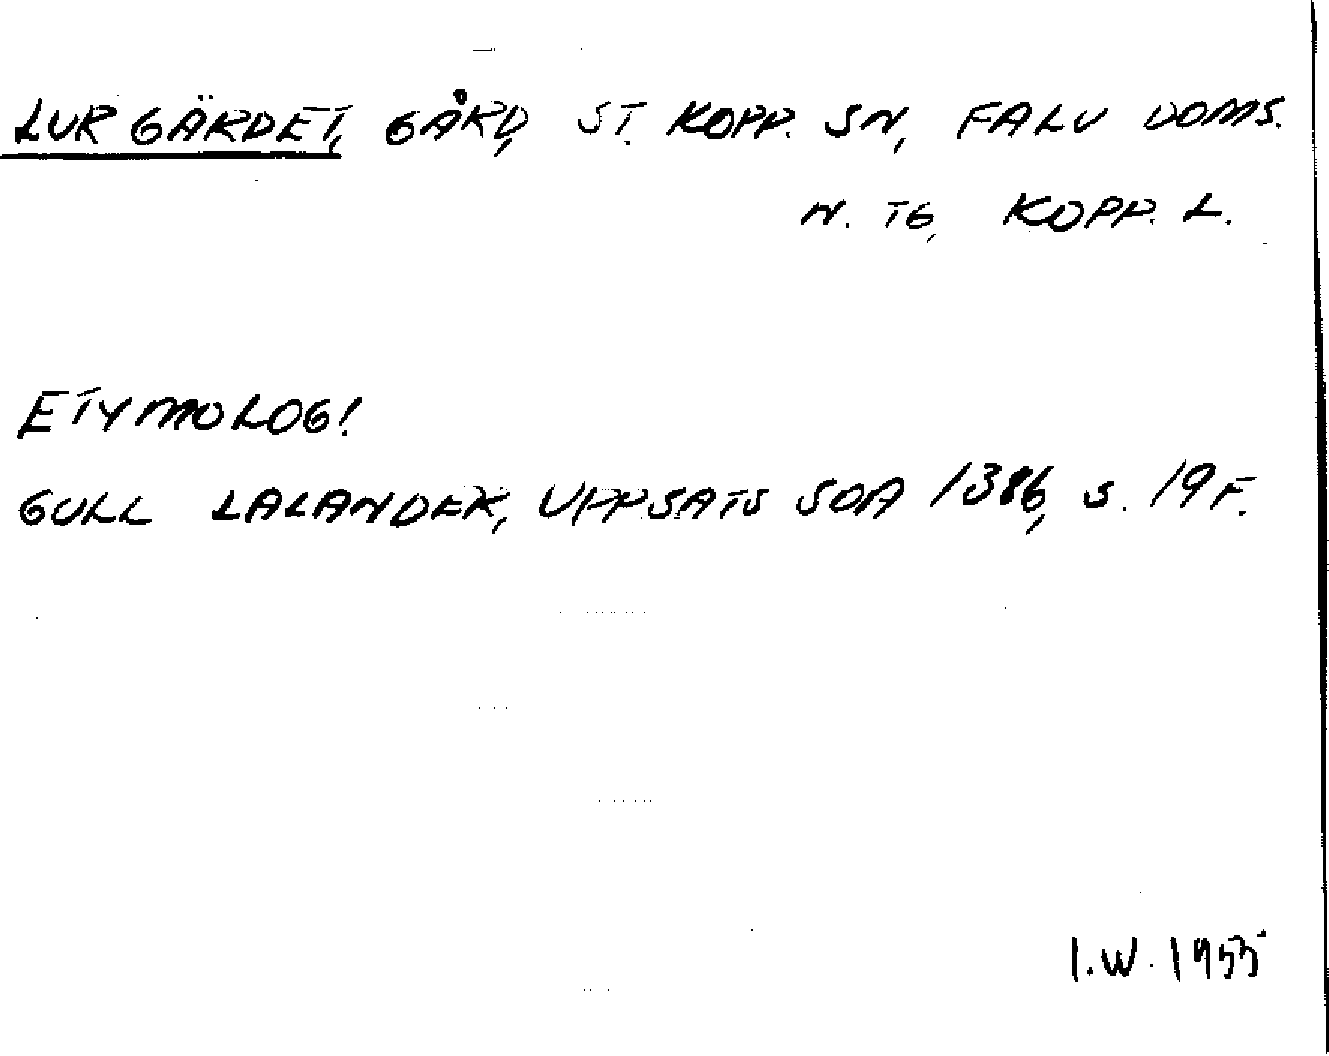 LURGÄRDET, GÅRD, ST. KOPP. SN, FALU DOMS.
N. TG, KOPP. L.
ETYMOLOG!
GULL LALANDER, UPPSATS SOA 1386, S. 19 F.
I.W. 1955